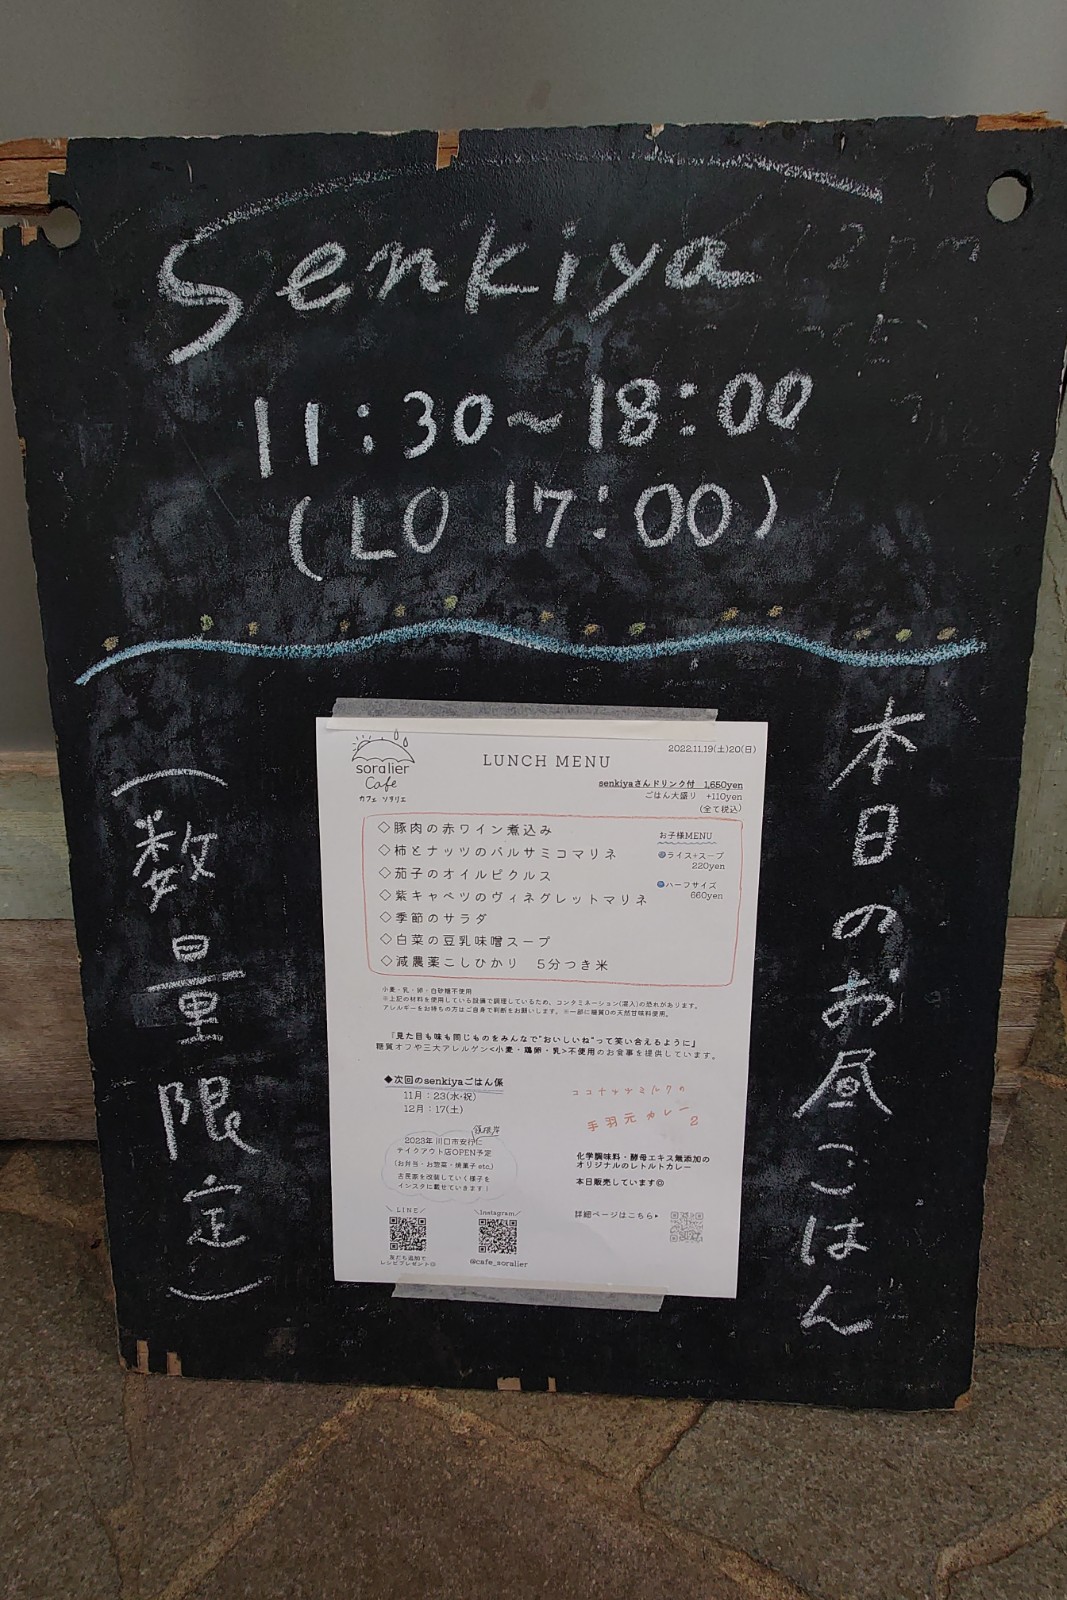 Senkiya
11:30~18:00
(LO 17:00)
本日のお昼ごはん
(数量限定)
soralier
Cafe
カフェ ソラリエ
LUNCH MENU
2022.11.19(土)20(日)
senkiyaさんドリンク付 1,650yen
ごはん大盛り +110yen
(全て税込)
◇豚肉の赤ワイン煮込み
◇柿とナッツのバルサミコマリネ
◇茄子のオイルピクルス
◇紫キャベツのヴィネグレットマリネ
◇季節のサラダ
◇白菜の豆乳味噌スープ
◇減農薬こしひかり 5分つき米
お子様MENU
ライス+スープ
220yen
ハーフサイズ
660yen
小麦・乳・卵・白砂糖不使用
※上記の材料を使用している設備で調理しているため、コンタミネーション(混入)の恐れがあります。
アレルギーをお持ちの方はご自身で判断をお願いします。※一部に糖質0の天然甘味料使用。
「見た目も味も同じものをみんなで"おいしいね"って笑い合えるように」
糖質オフや三大アレルゲン<小麦・鶏卵・乳>不使用のお食事を提供しています。
◆次回のsenkiyaごはん係
11月:23(水・祝)
12月:17(土)
ココナッツミルクの
手羽元カレー
2023年 川口市安行に
テイクアウト店OPEN予定
(お弁当・お惣菜・焼菓子 etc.)
古民家を改装していく様子を
インスタに載せていきます!
化学調味料・酵母エキス無添加の
オリジナルのレトルトカレー
本日販売しています◎
詳細ページはこちら▸
LINE
友だち追加で
レシピプレゼント◎
Instagram
@cafe_soralier